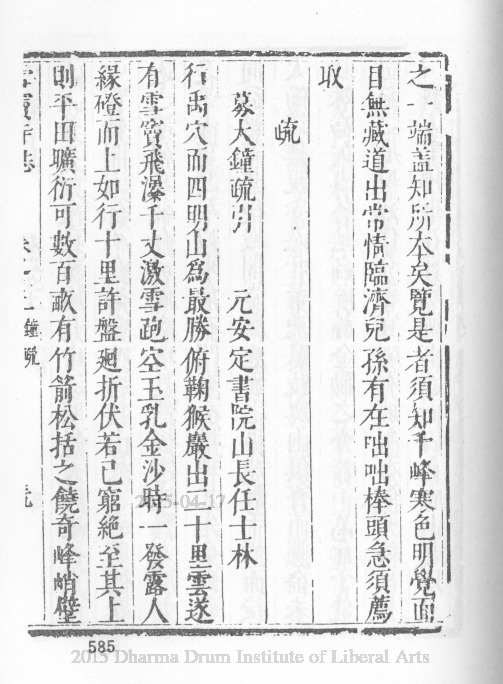 之一端盖知所本矣覽是者須知千峰寒色明覺面
目無藏道出常情臨濟兒孫有在咄咄棒頭急須薦
取
疏
募大鐘疏引 元安定書院山長任士林
行禹穴而四明山爲最勝俯鞠㺅巖出二十里雲遂
有雪竇飛瀑千丈激雪跑空玉乳金沙時一發露人
緣磴而上如行十里許盤廻折伏若已窮絶至其上
則平田曠衍可數百畝有竹箭松括之饒奇峰峭壁
雪竇寺志 鐘疏
2015-04-17
585
2015 Dharma Drum Institute of Liberal Arts